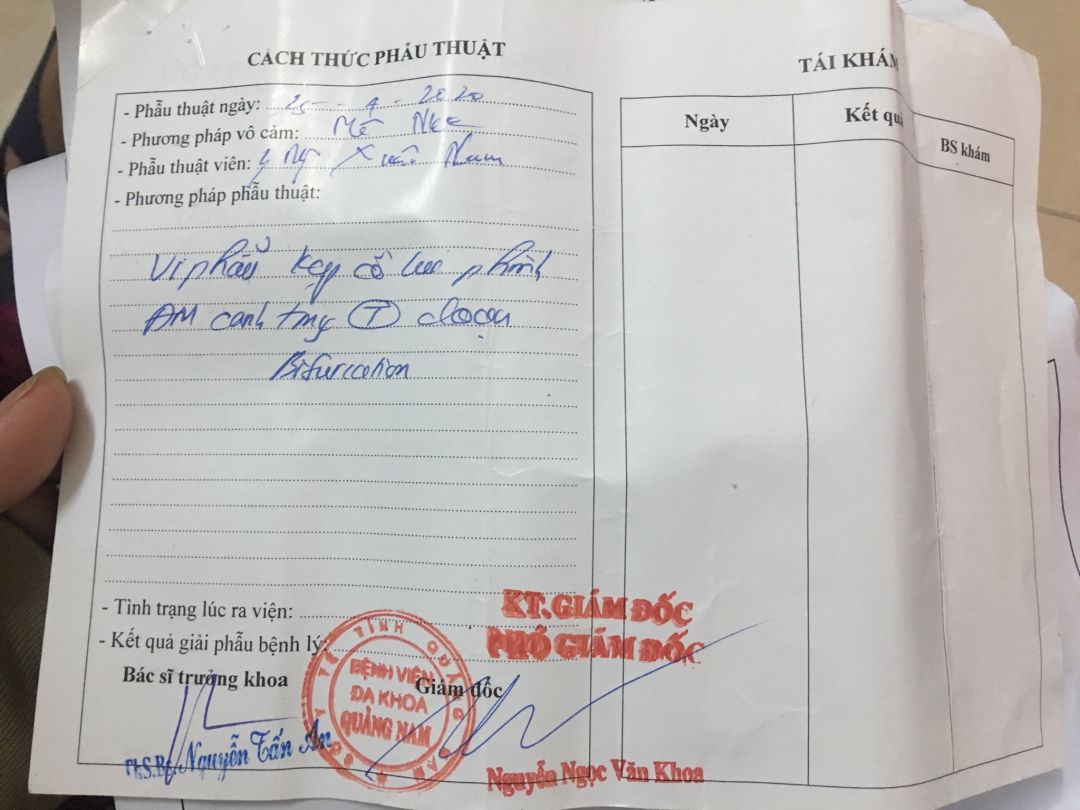 CÁCH THỨC PHẪU THUẬT
- Phẫu thuật ngày: 25 - 4 - 2020
- Phương pháp vô cảm: Mê NKQ
- Phẫu thuật viên: Xuân Nam
- Phương pháp phẫu thuật:
Vi phẫu kẹp cổ túi phình
ĐM cảnh trong (T) đoạn
Bifurcation
- Tình trạng lúc ra viện:
- Kết quả giải phẫu bệnh lý:
Bác sĩ trưởng khoa
Giám đốc
KT.GIÁM ĐỐC
PHÓ GIÁM ĐỐC
SỞ Y TẾ TỈNH QUẢNG NAM
BỆNH VIỆN
ĐA KHOA
QUẢNG NAM
Nguyễn Tấn An
Nguyễn Ngọc Văn Khoa
TÁI KHÁM
Ngày
Kết quả
BS khám